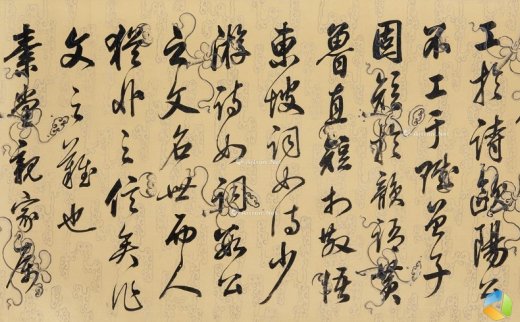 工於詩歐陽公
不工于賦曾子
固短於韻語黃
魯直短於散語
東坡詞如詩少
游詩如詞數公
之文名世而人
猶非之信矣作
文之難也
素堂親家屬